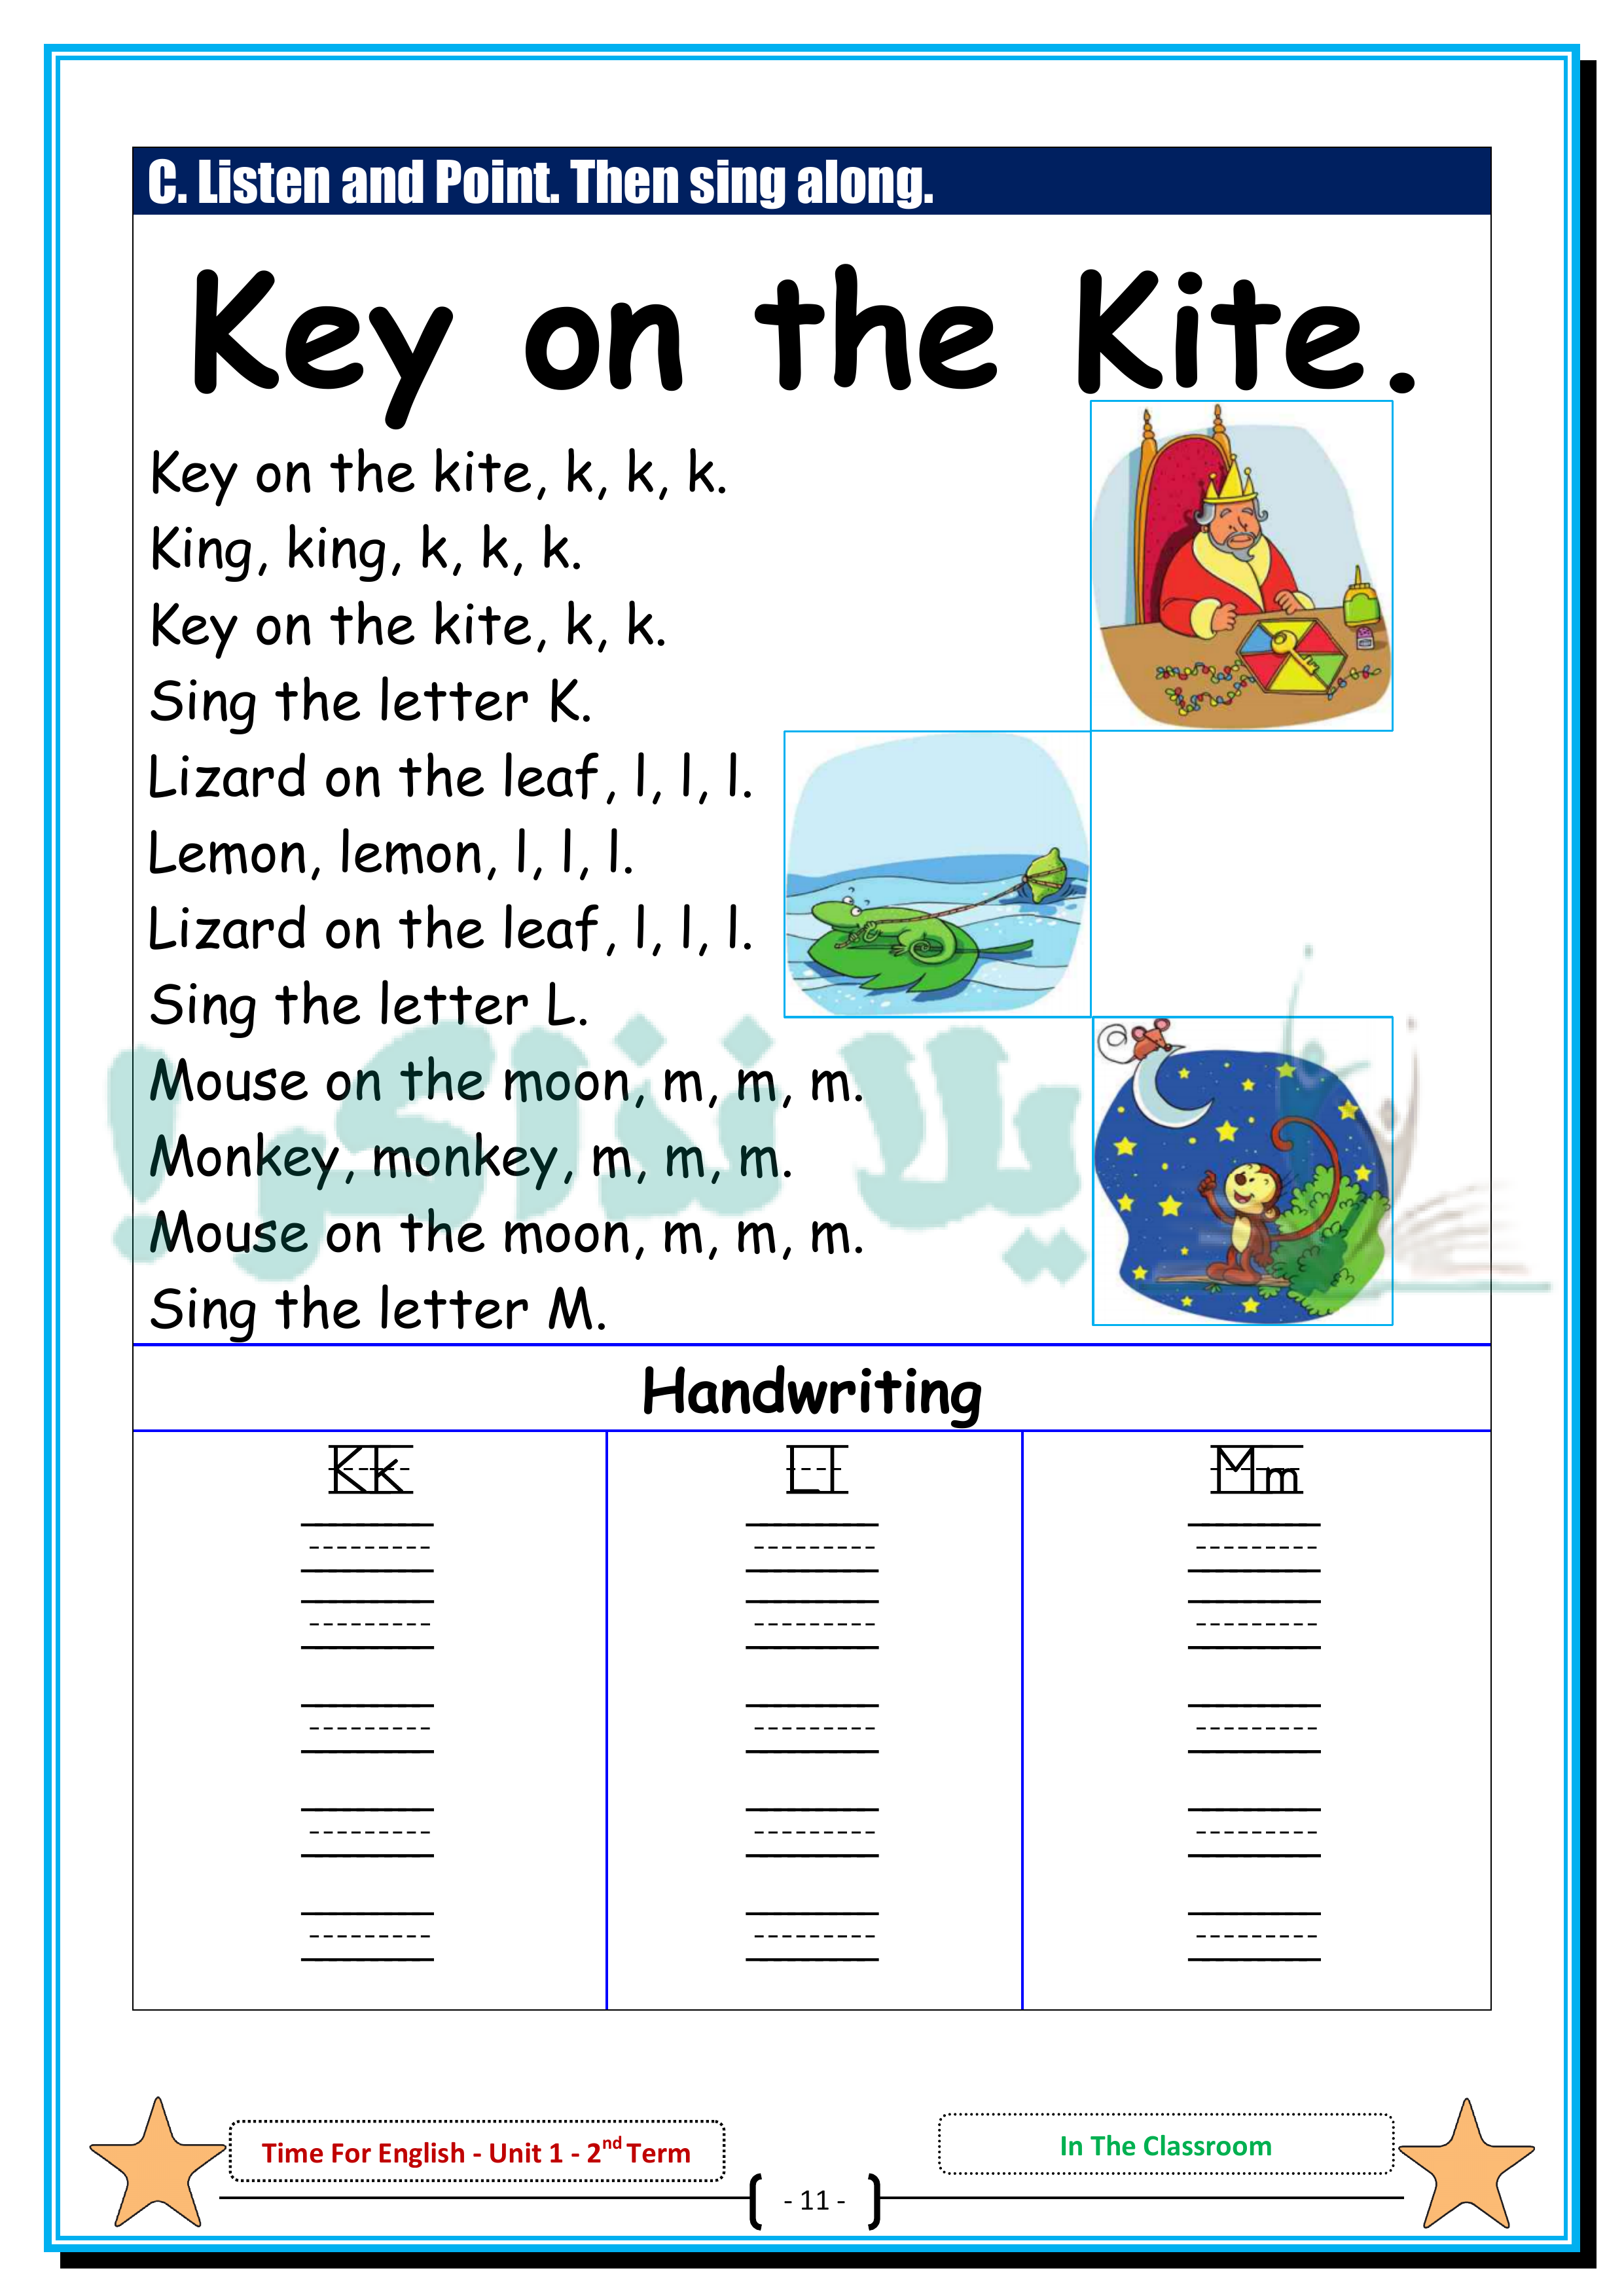 C. Listen and Point. Then sing along.
Key on the Kite.
Key on the kite, k, k, k.
King, king, k, k, k.
Key on the kite, k, k.
Sing the letter K.
Lizard on the leaf, l, l, l.
Lemon, lemon, l, l, l.
Lizard on the leaf, l, l, l.
Sing the letter L.
Mouse on the moon, m, m, m.
Monkey, monkey, m, m, m.
Mouse on the moon, m, m, m.
Sing the letter M.
يلا نذاكر!
Handwriting
Kk Ll Mm
Time For English - Unit 1 - 2nd Term
In The Classroom
- 11 -